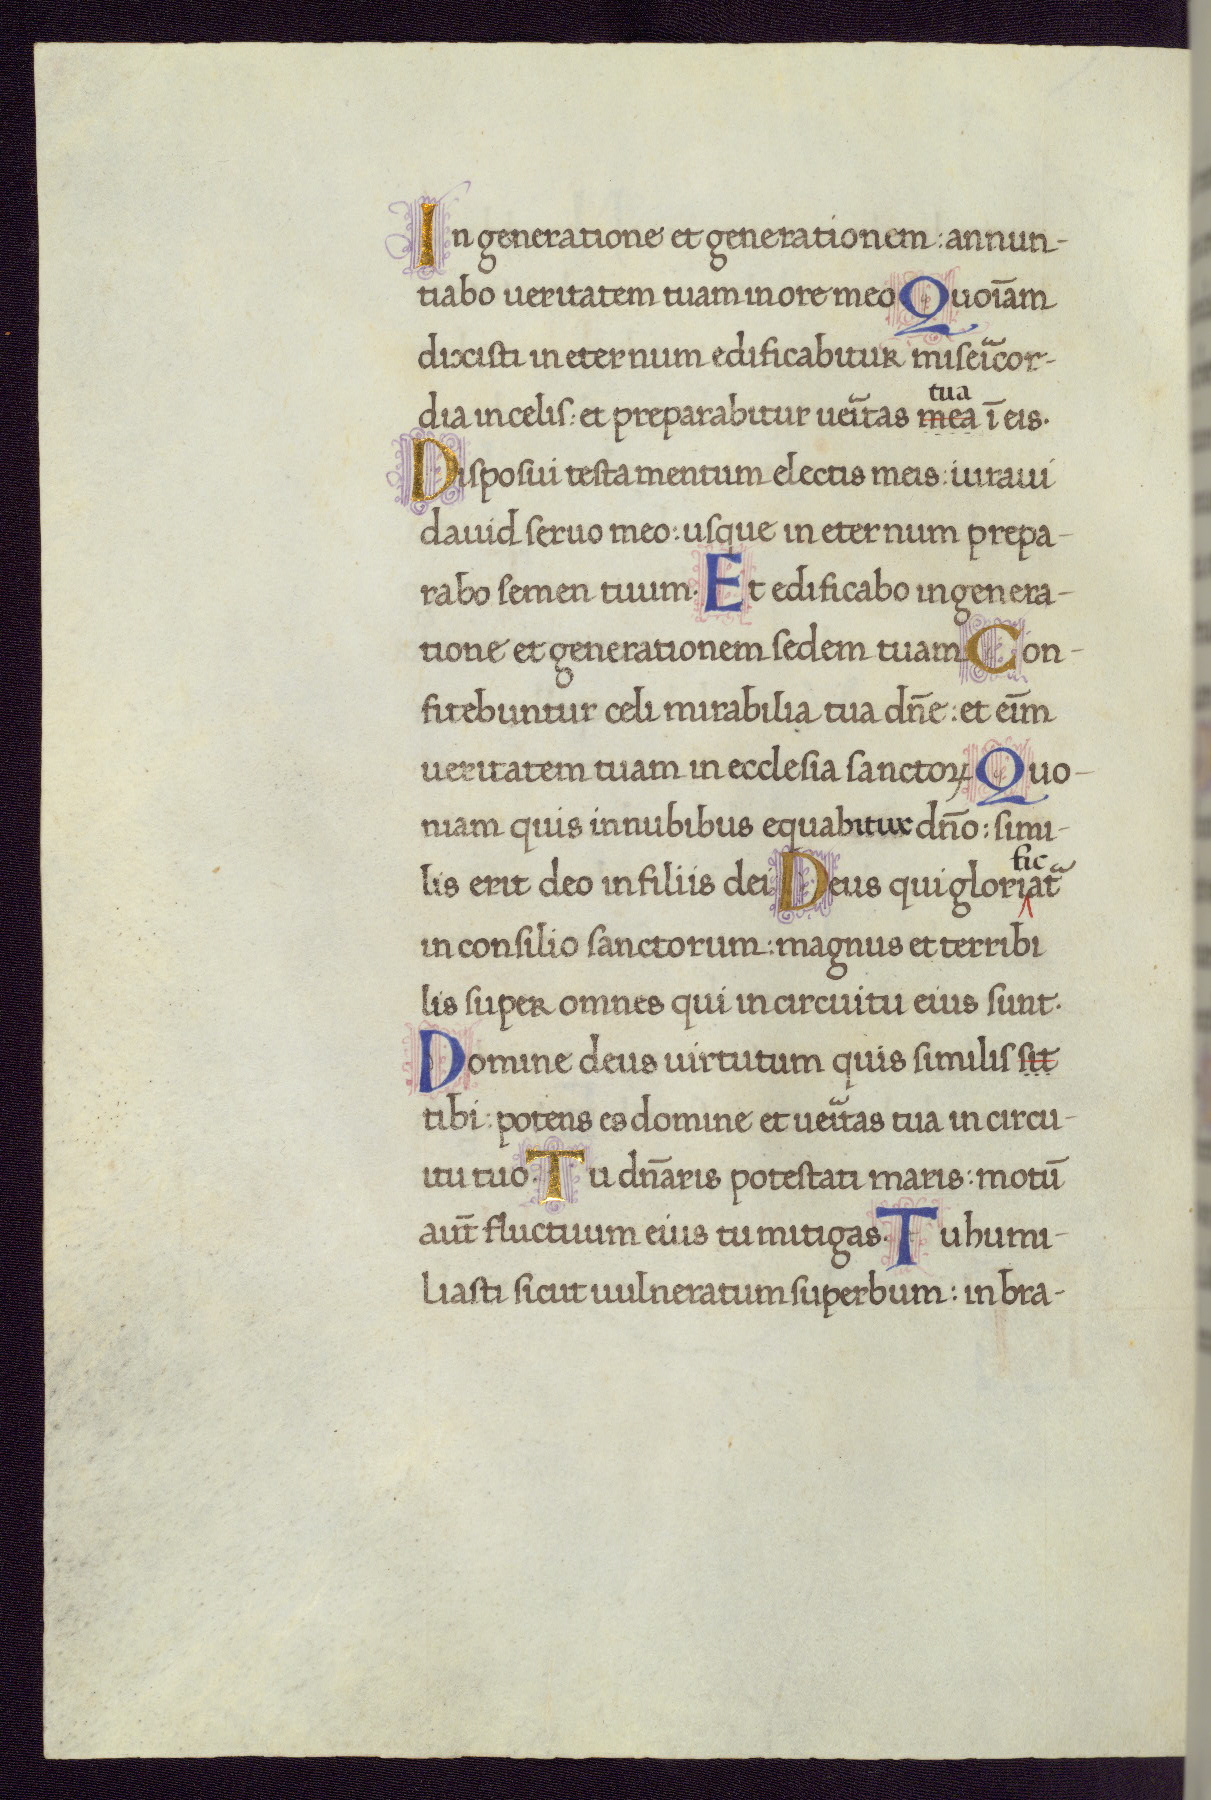 In generatione et generationem : annun-
tiabo ueritatem tuam in ore meo Quoīam
dixisti in eternum edificabitur miseicor-
tua
dia in celis : et preparabitur ueitas mea ī eis.
Disposui testamentum electis meis : iuraui
dauid seruo meo : usque in eternum prepa-
rabo semen tuum. Et edificabo in genera-
tione et generationem sedem tuam Con-
fitebuntur celi mirabilia tua dn̄e : et eīm
ueritatem tuam in ecclesia sanctoꝝ Quo-
niam quis in nubibus equabitur dn̄o : simi-
fic
lis erit deo in filiis dei Deus qui gloriat᷑
in consilio sanctorum : magnus et terribi
lis super omnes qui in circuitu eius sunt.
Domine deus uirtutum quis similis sit
tibi : potens es domine et ueitas tua in circu-
itu tuo. Tu dn̄aris potestati maris : motū
aut̄ fluctuum eius tu mitigas. Tu humi-
liasti sicut uulneratum superbum : in bra-